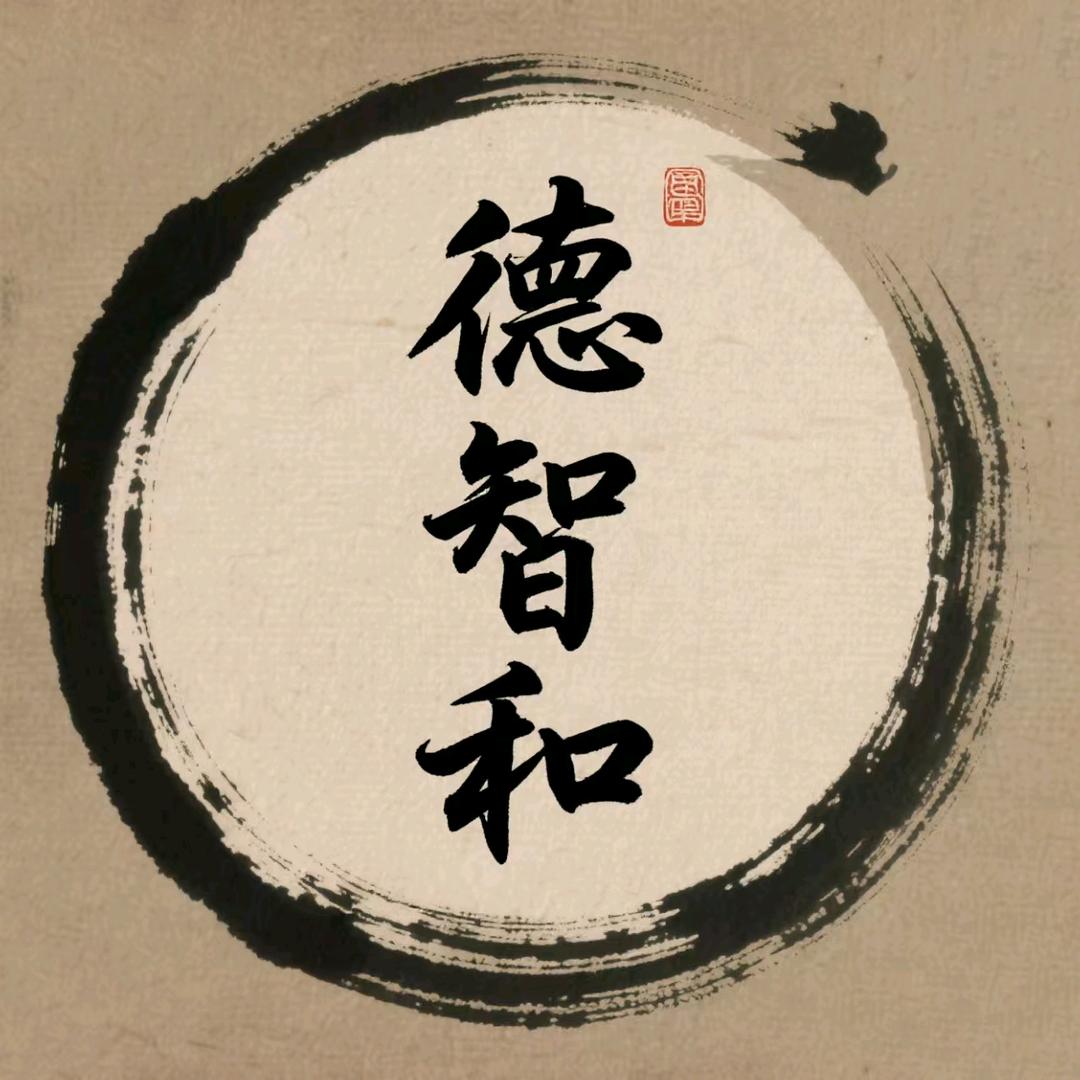 德智和